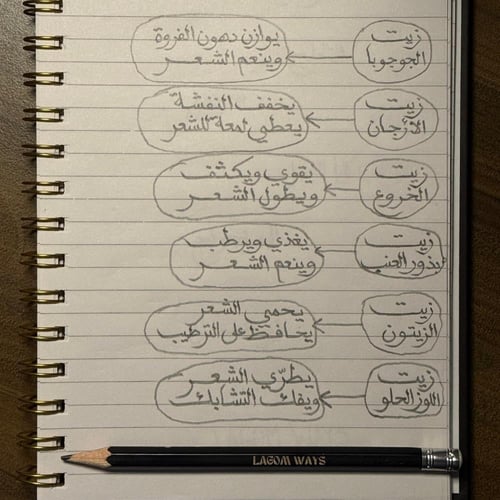 زيت
الجوجوبا
يوازن دهون الفروة
وينعم الشعر
زيت
الأرجان
يخفف النفشة
يعطي لمعة للشعر
زيت
الخروع
يقوي ويكثف
ويطول الشعر
زيت
بذور العنب
يغذي ويرطب
وينعم الشعر
زيت
الزيتون
يحمي الشعر
يحافظ على الترطيب
زيت
اللوز الحلو
يطرّي الشعر
ويفك التشابك
LAGOM WAYS